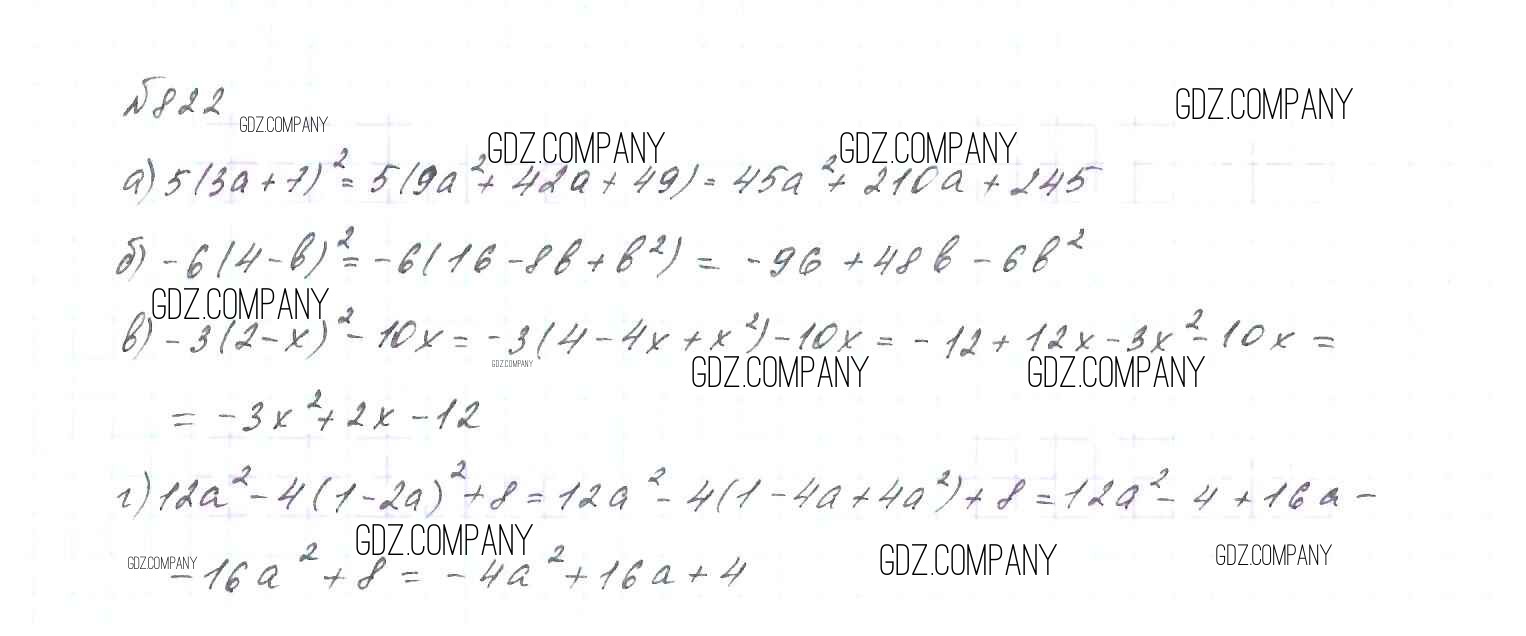 №822
GDZ.COMPANY
GDZ.COMPANY GDZ.COMPANY GDZ.COMPANY
а) 5(3a+7)² = 5(9a² + 42a + 49) = 45a² + 210a + 245
б) -6(4-b)² = -6(16-8b+b²) = -96 + 48b - 6b²
GDZ.COMPANY
в) -3(2-x)² - 10x = -3(4-4x+x²) - 10x = -12 + 12x - 3x² - 10x =
GDZ.COMPANY GDZ.COMPANY GDZ.COMPANY
= -3x² + 2x - 12
г) 12a² - 4(1-2a)² + 8 = 12a² - 4(1-4a+4a²) + 8 = 12a² - 4 + 16a -
GDZ.COMPANY GDZ.COMPANY GDZ.COMPANY GDZ.COMPANY
- 16a² + 8 = -4a² + 16a + 4